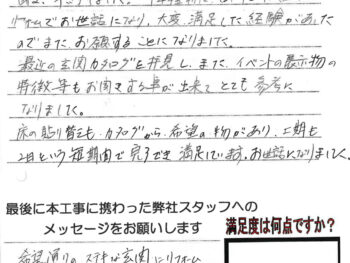 リフォームでお世話になり、大変、満足した経験があった
のでまた、お願することになりました。
最近の玄関カタログを拝見し、また、イベントの展示物の
特徴等もお聞きする事が出来てとても参考に
なりました。
床の貼り替えも、カタログから、希望の物があり、工期も
2日という短期間で完了でき満足しています。お世話になりました。
最後に本工事に携わった弊社スタッフへの
メッセージをお願いします
満足度は何点ですか?
希望通りの、ステキな玄関にリフォーム